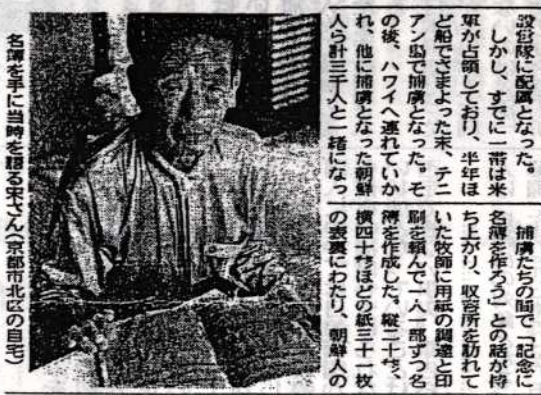 設営隊に配属となった。
しかし、すでに一帯は米
軍が占領しており、半年ほ
ど船でさまよった末、テニ
アン島で捕虜となった。そ
の後、ハワイへ連れていか
れ、他に捕虜となった朝鮮
人ら計三千人と一緒になっ
捕虜たちの間で「記念に
名簿を作ろう」との話が持
ち上がり、収容所を訪れて
いた牧師に用紙の調達と印
刷を頼んで一人一部ずつ名
簿を作成した。縦二十㌢、
横四十㌢ほどの紙三十一枚
の表裏にわたり、朝鮮人の
名簿を手に当時を語る宋さん(京都市北区の自宅)